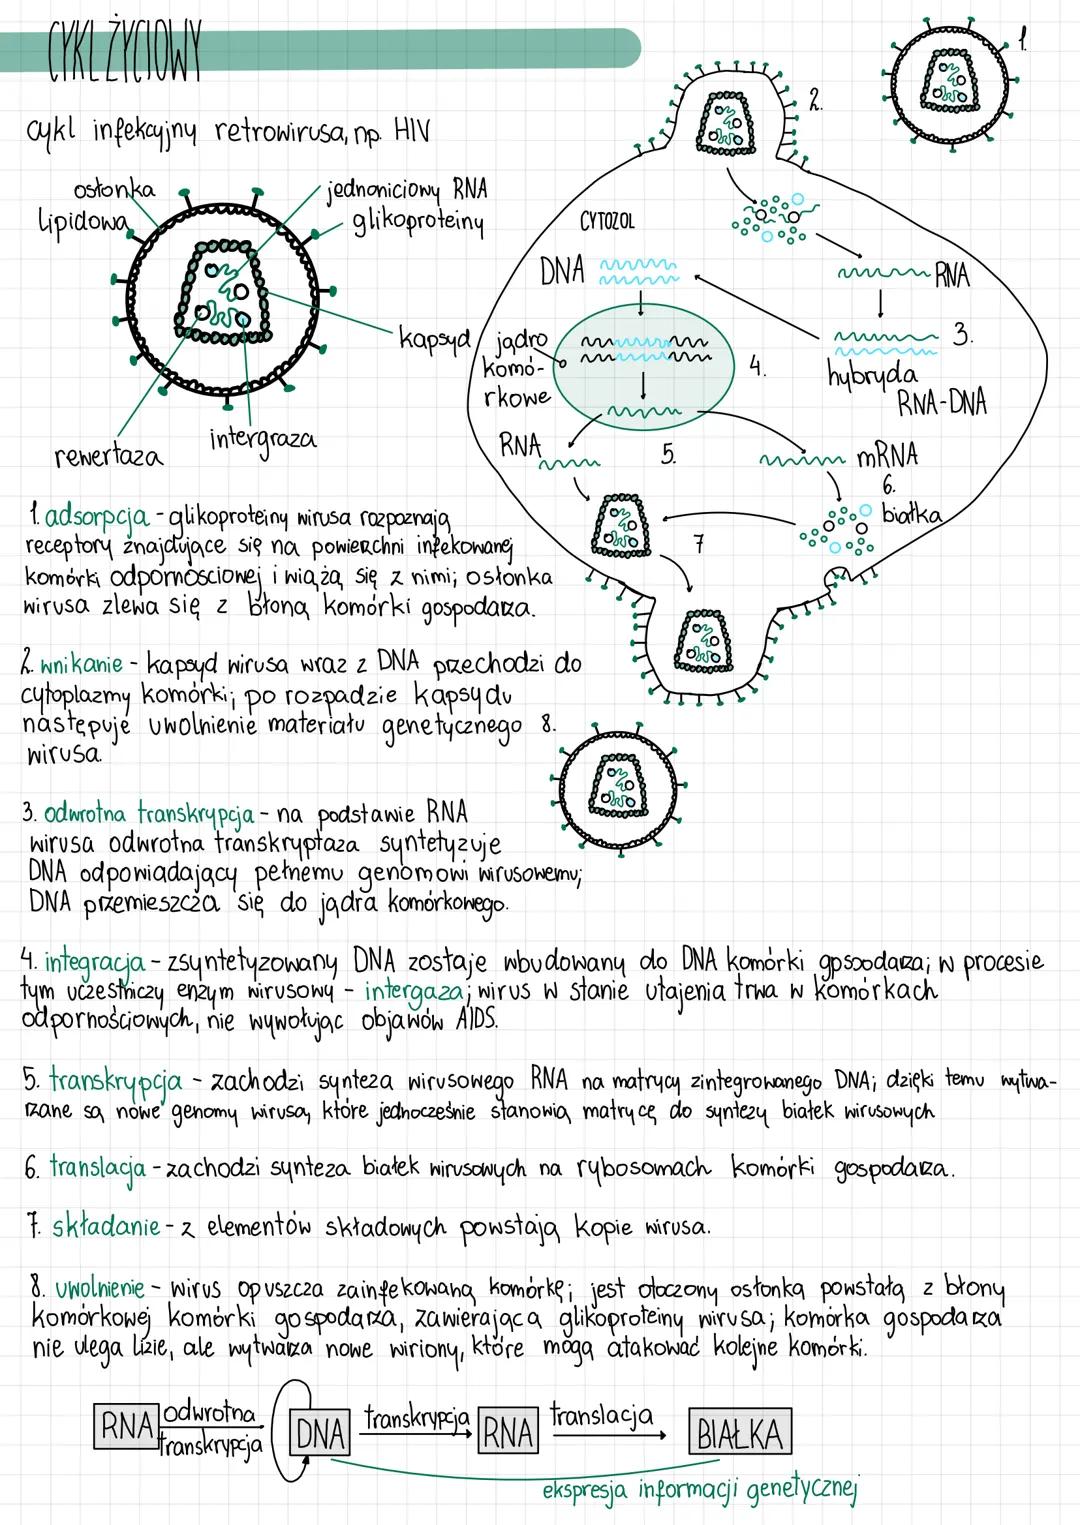 CYKL ŻYCIOWY
cykl infekcyjny retrowirusa, np. HIV
osłonka
lipidowa
jednoniciowy RNA
glikoproteiny
kapsyd
rewertaza
intergraza
1.
2.
CYTOZOL
DNA
RNA
3.
hybryda
RNA-DNA
jądro
komó-
rkowe
4.
RNA
5.
mRNA
6.
białka
7
8.
1. adsorpcja - glikoproteiny wirusa rozpoznają
receptory znajdujące się na powierzchni infekowanej
komórki odpornościowej i wiążą się z nimi; osłonka
wirusa zlewa się z błoną komórki gospodarza.
2. wnikanie - kapsyd wirusa wraz z DNA przechodzi do
cytoplazmy komórki; po rozpadzie kapsydu
następuje uwolnienie materiału genetycznego
wirusa.
3. odwrotna transkrypcja - na podstawie RNA
wirusa odwrotna transkryptaza syntetyzuje
DNA odpowiadający pełnemu genomowi wirusowemu;
DNA przemieszcza się do jądra komórkowego.
4. integracja - zsyntetyzowany DNA zostaje wbudowany do DNA komórki gpsoodarza; w procesie
tym uczestniczy enzym wirusowy - intergaza; wirus w stanie utajenia trwa w komórkach
odpornościowych, nie wywołując objawów AIDS.
5. transkrypcja - zachodzi synteza wirusowego RNA na matrycy zintegrowanego DNA; dzięki temu wytwa-
rzane są nowe genomy wirusa, które jednocześnie stanowią matrycę do syntezy białek wirusowych
6. translacja - zachodzi synteza białek wirusowych na rybosomach komórki gospodarza.
7. składanie - z elementów składowych powstają kopie wirusa.
8. uwolnienie - wirus opuszcza zainfekowaną komórkę; jest otoczony osłonką powstałą z błony
komórkowej komórki gospodarza, zawierająca glikoproteiny wirusa; komórka gospodarza
nie ulega lizie, ale wytwarza nowe wiriony, które mogą atakować kolejne komórki.
RNA odwrotna transkrypcja DNA transkrypcja RNA translacja BIAŁKA
ekspresja informacji genetycznej